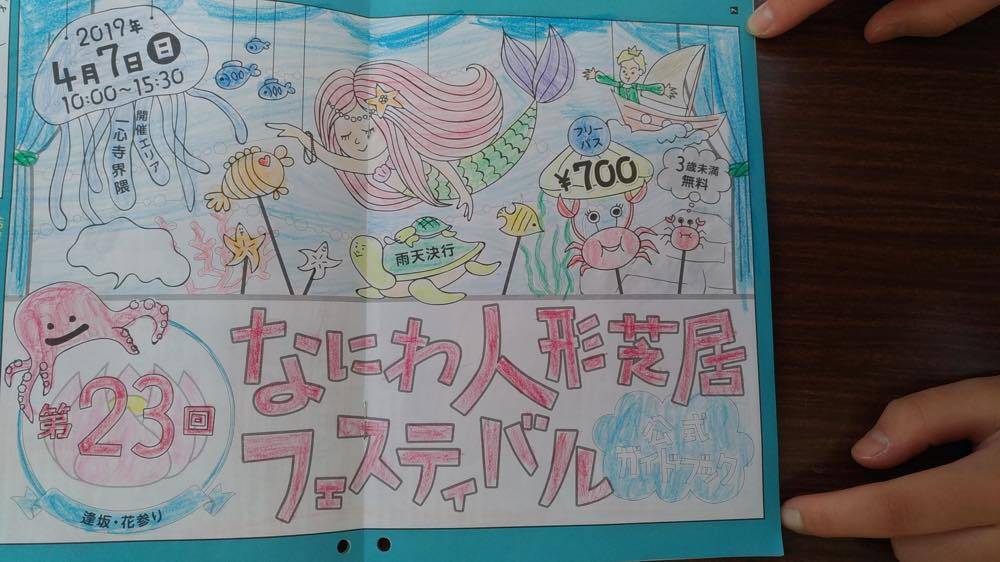 2019年
4月7日日
10:00〜15:30
開催エリア
一心寺界隈
フリー
パス
¥700
3歳未満
無料
雨天決行
なにわ人形芝居
フェスティバル
第23回
公式
ガイドブック
逢坂・花参り